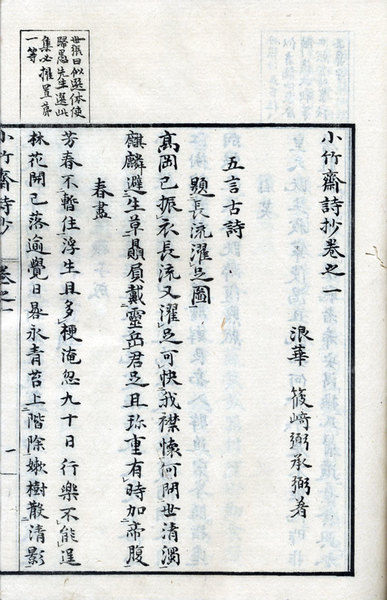 世張曰似選体使
歸愚先生選此
集必推置第
一等
小竹齋詩抄卷之一
浪華 篠﨑弼承弼著
五言古詩
題長流濯足圖
高岡已振衣長流又濯足可快我襟懷何問世清濁
麒麟避生草贔屓戴靈岳君足且珎重有時加帝腹
春盡
芳春不暫住浮生且多梗淹忽九十日行樂不能逞
林花開已落逾覺日晷永青苔上階除嫩樹散清影
小竹齋詩抄 卷之一 一